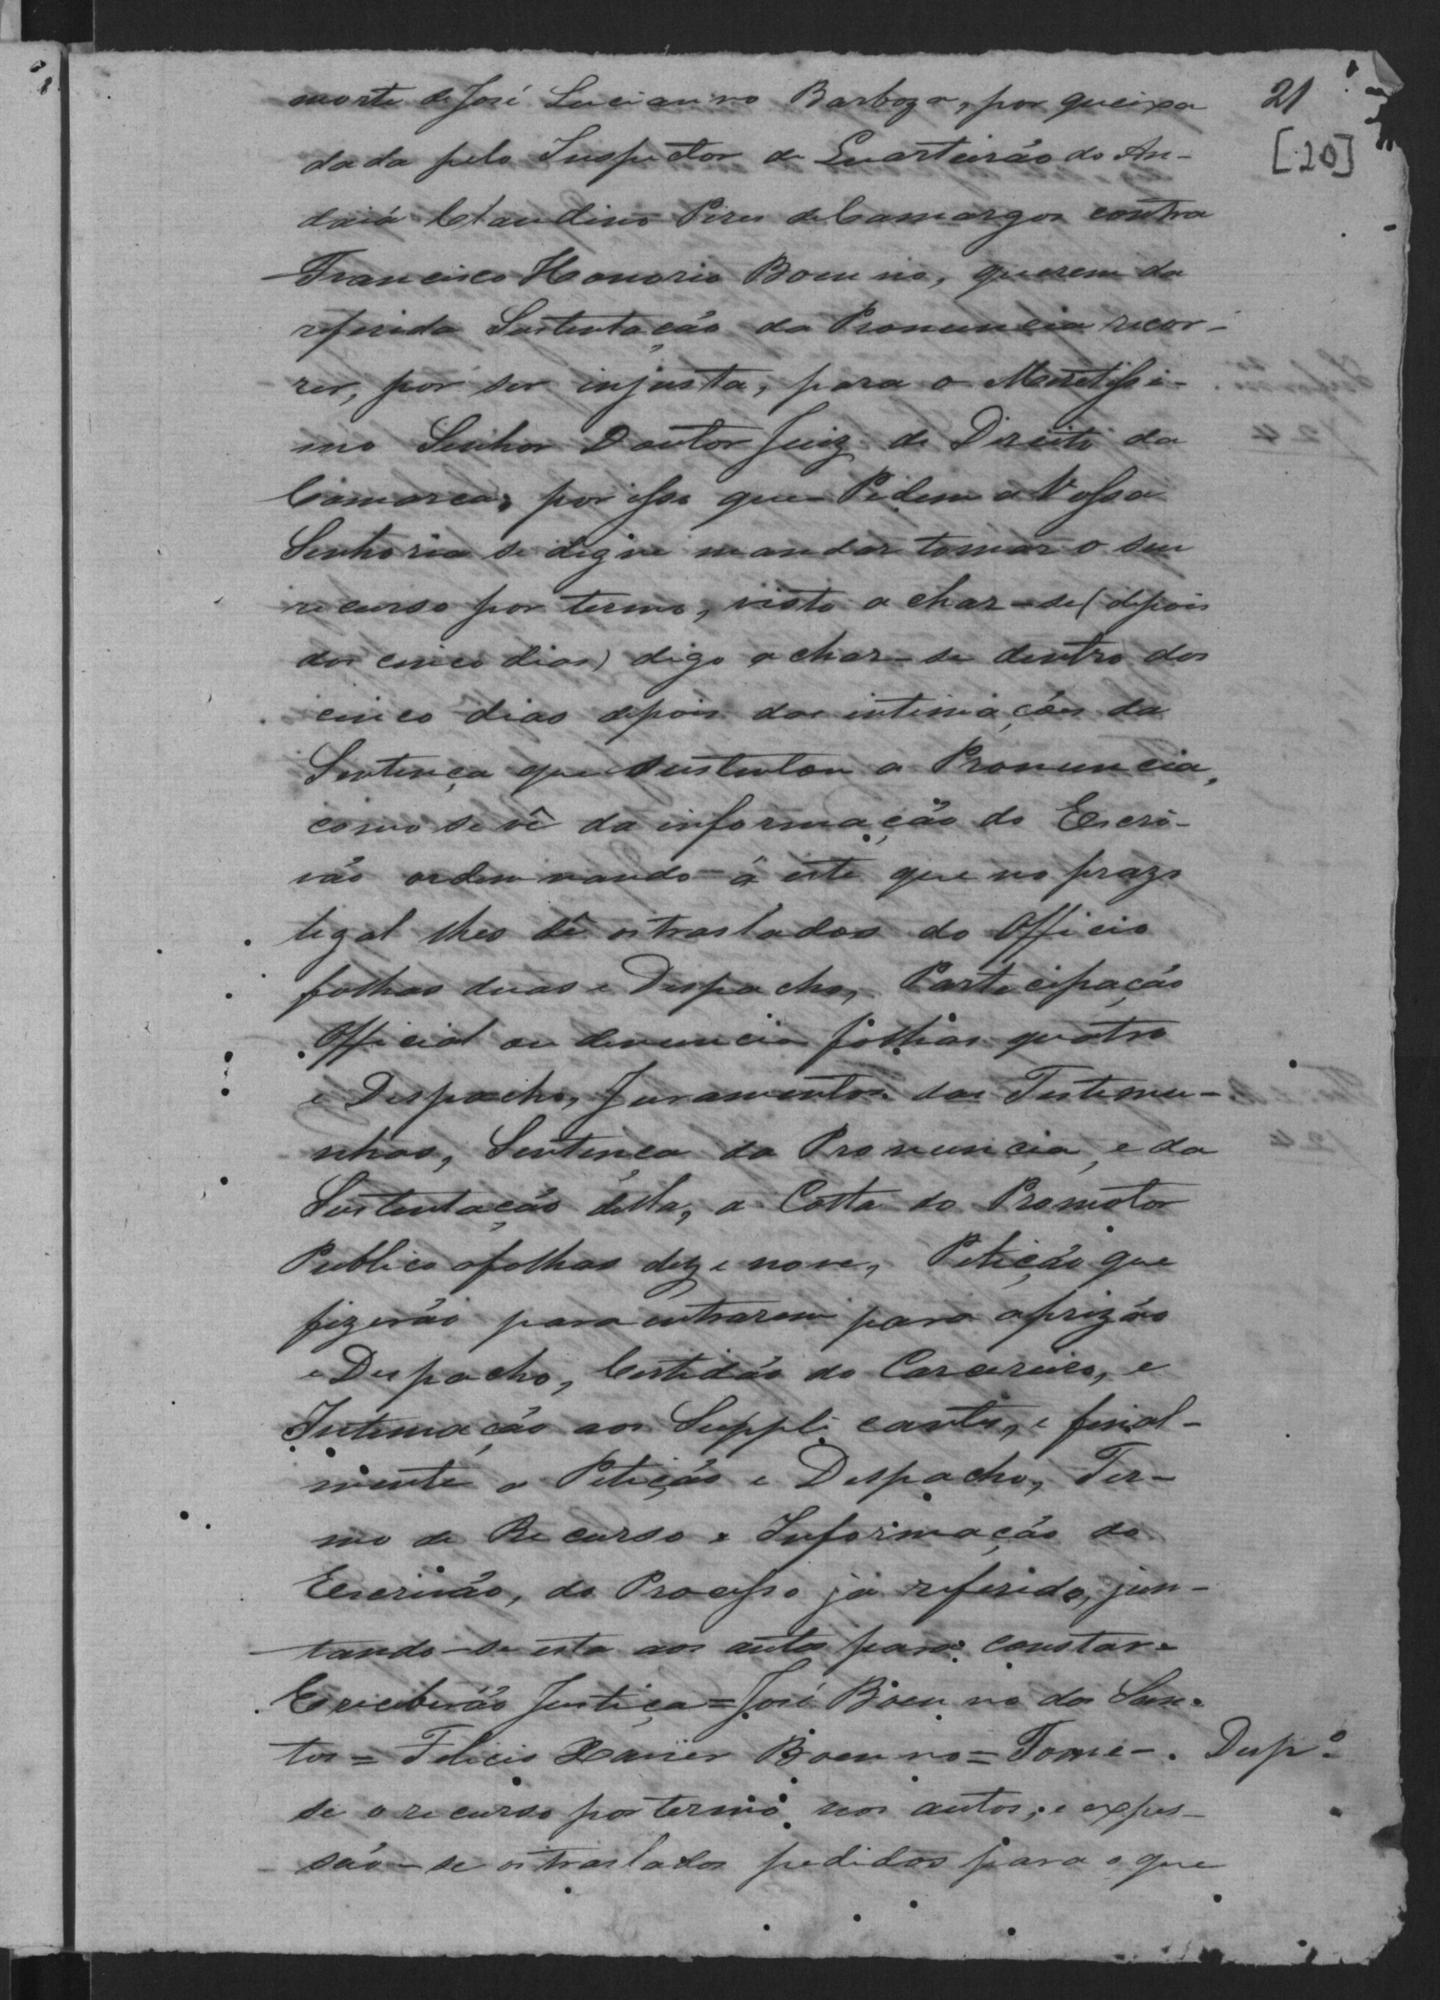 21
[20]
morte de José Lucianno Barboza, por queixa
dada pelo Inspector de Quarteirão do An-
daiá Claudino Pires de Camargos contra
Francisco Honorio Boenno, querem da
referida Sustentação da Pronuncia recor-
rer, por ser injusta, para o Meretissi-
mo Senhor Doutor Juiz de Direito da
Comarca, por isso que Pedem a Vossa
Senhoria se digne mandar tomar o seu
recurso por termo, visto achar-se (depois
dos cinco dias) digo achar-se dentro dos
cinco dias depois das intimações da
Sentença que sustentou a Pronuncia,
como se vê da informação do Escri-
vão ordennando á este que no prazo
legal lhes dê os traslados do Officio
folhas duas e Despacho, Participação
Official ou denuncia folhas quatro
e Despacho, Juramentos das Testemu-
nhas, Sentença da Pronuncia, e da
Sustentação desta, a Cotta do Promotor
Publico a folhas dezenove, Petição que
fizerão para entrarem para a prizão
e Despacho, Certidão do Carcereiro, e
Intimação aos Supplicantes, e final-
mente a Petição e Despacho, Ter-
mo de Recurso e Informação do
Escrivão, do Processo já referido, jun-
tando-se esta aos autos para constar.
E receberão Justiça = José Boenno dos San-
tos = Felicio Xavier Boenno = Tome-. Desp.º
se o recurso por termo nos autos, e expes-
são-se os traslados pedidos para o que